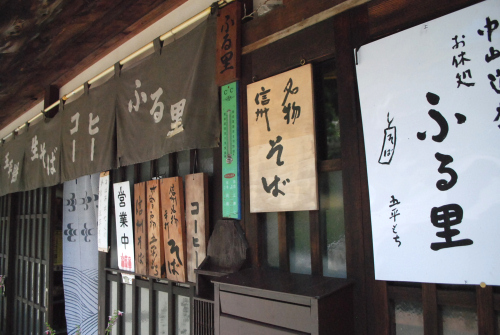 中山道
お休処
ふる里
そば
五平もち
名物
信州
そば
ふる里
ふる里
コーヒー
生そば
営業中
コーヒー
そば